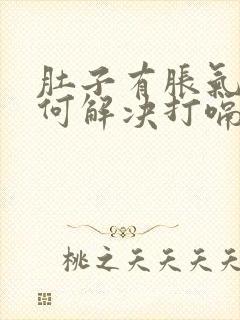 肚子有脹氣
何解決打嗝
桃之夭夭夭夭